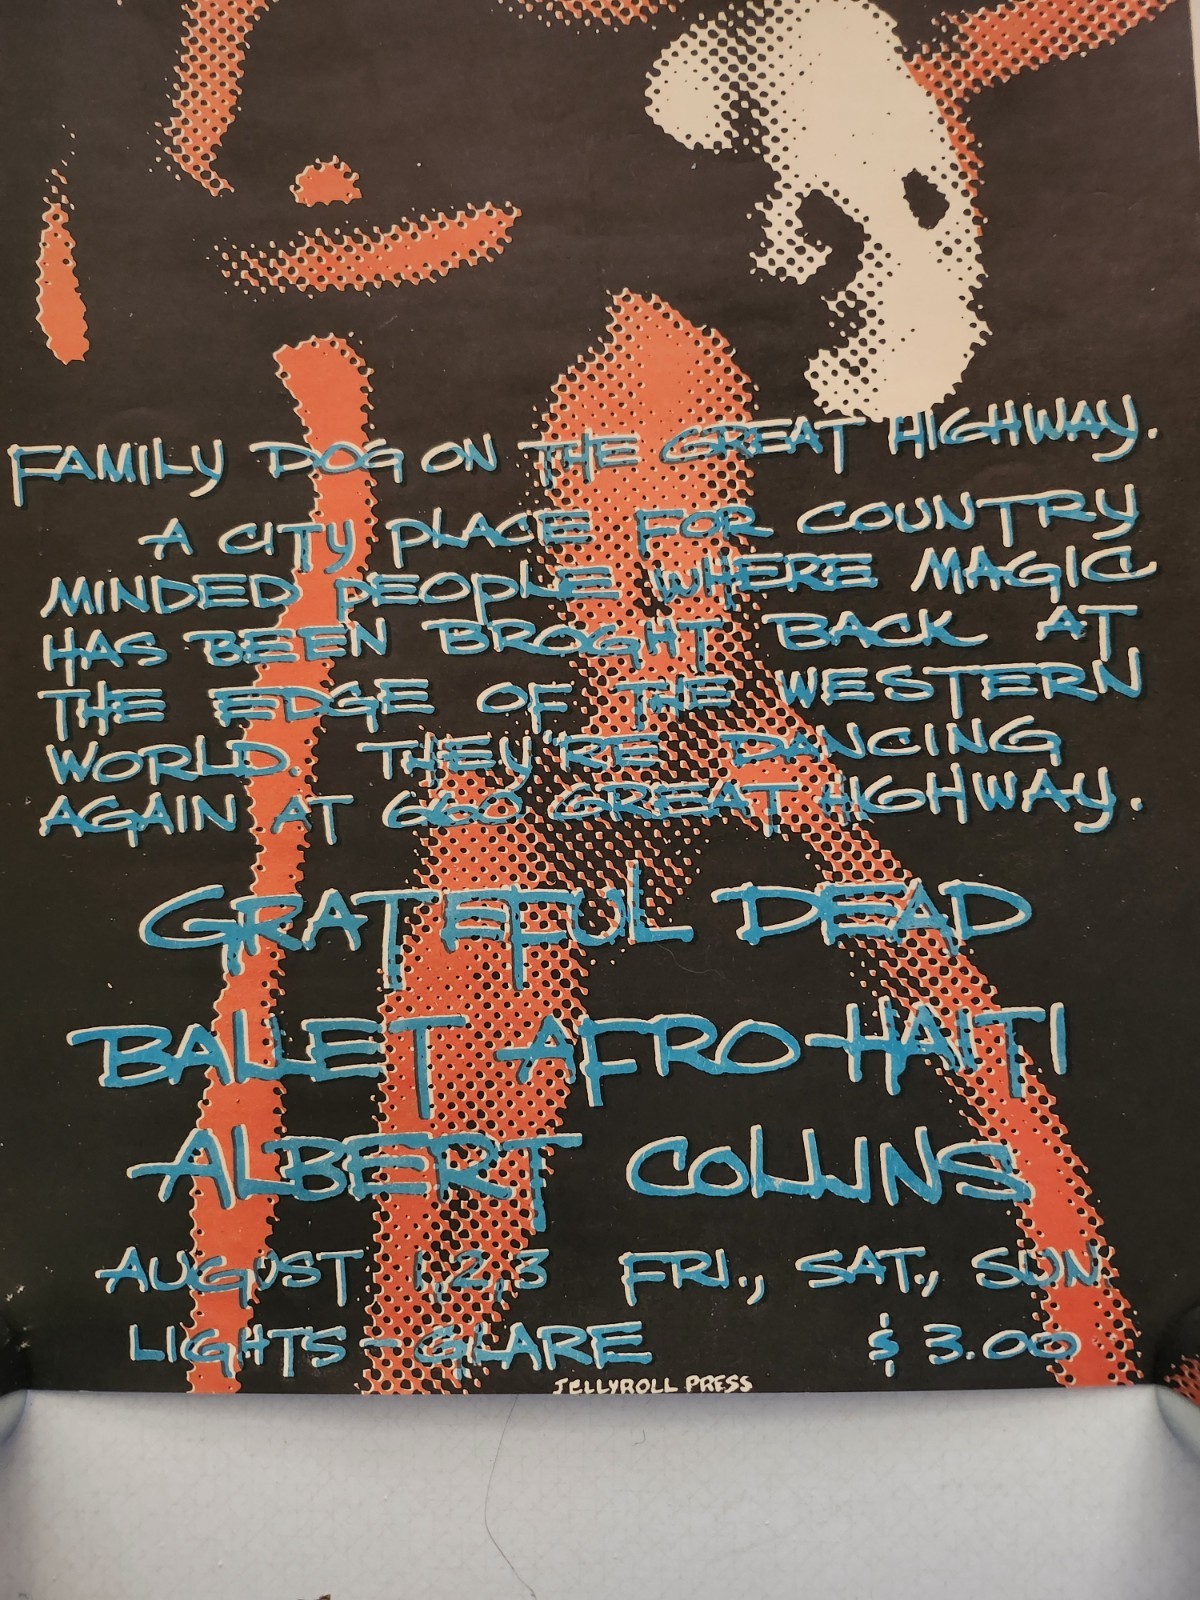 FAMILY DOG ON THE GREAT HIGHWAY.
A CITY PLACE FOR COUNTRY
MINDED PEOPLE WHERE MAGIC
HAS BEEN BROGHT BACK AT
THE EDGE OF THE WESTERN
WORLD. THEY"RE DANCING
AGAIN AT 660 GREAT HIGHWAY.
GRATEFUL DEAD
BALLET AFRO-HAITI
ALBERT COLLINS
AUGUST 1,2,3 FRI., SAT., SUN.
LIGHTS - GLARE $ 3.00
JELLYROLL PRESS